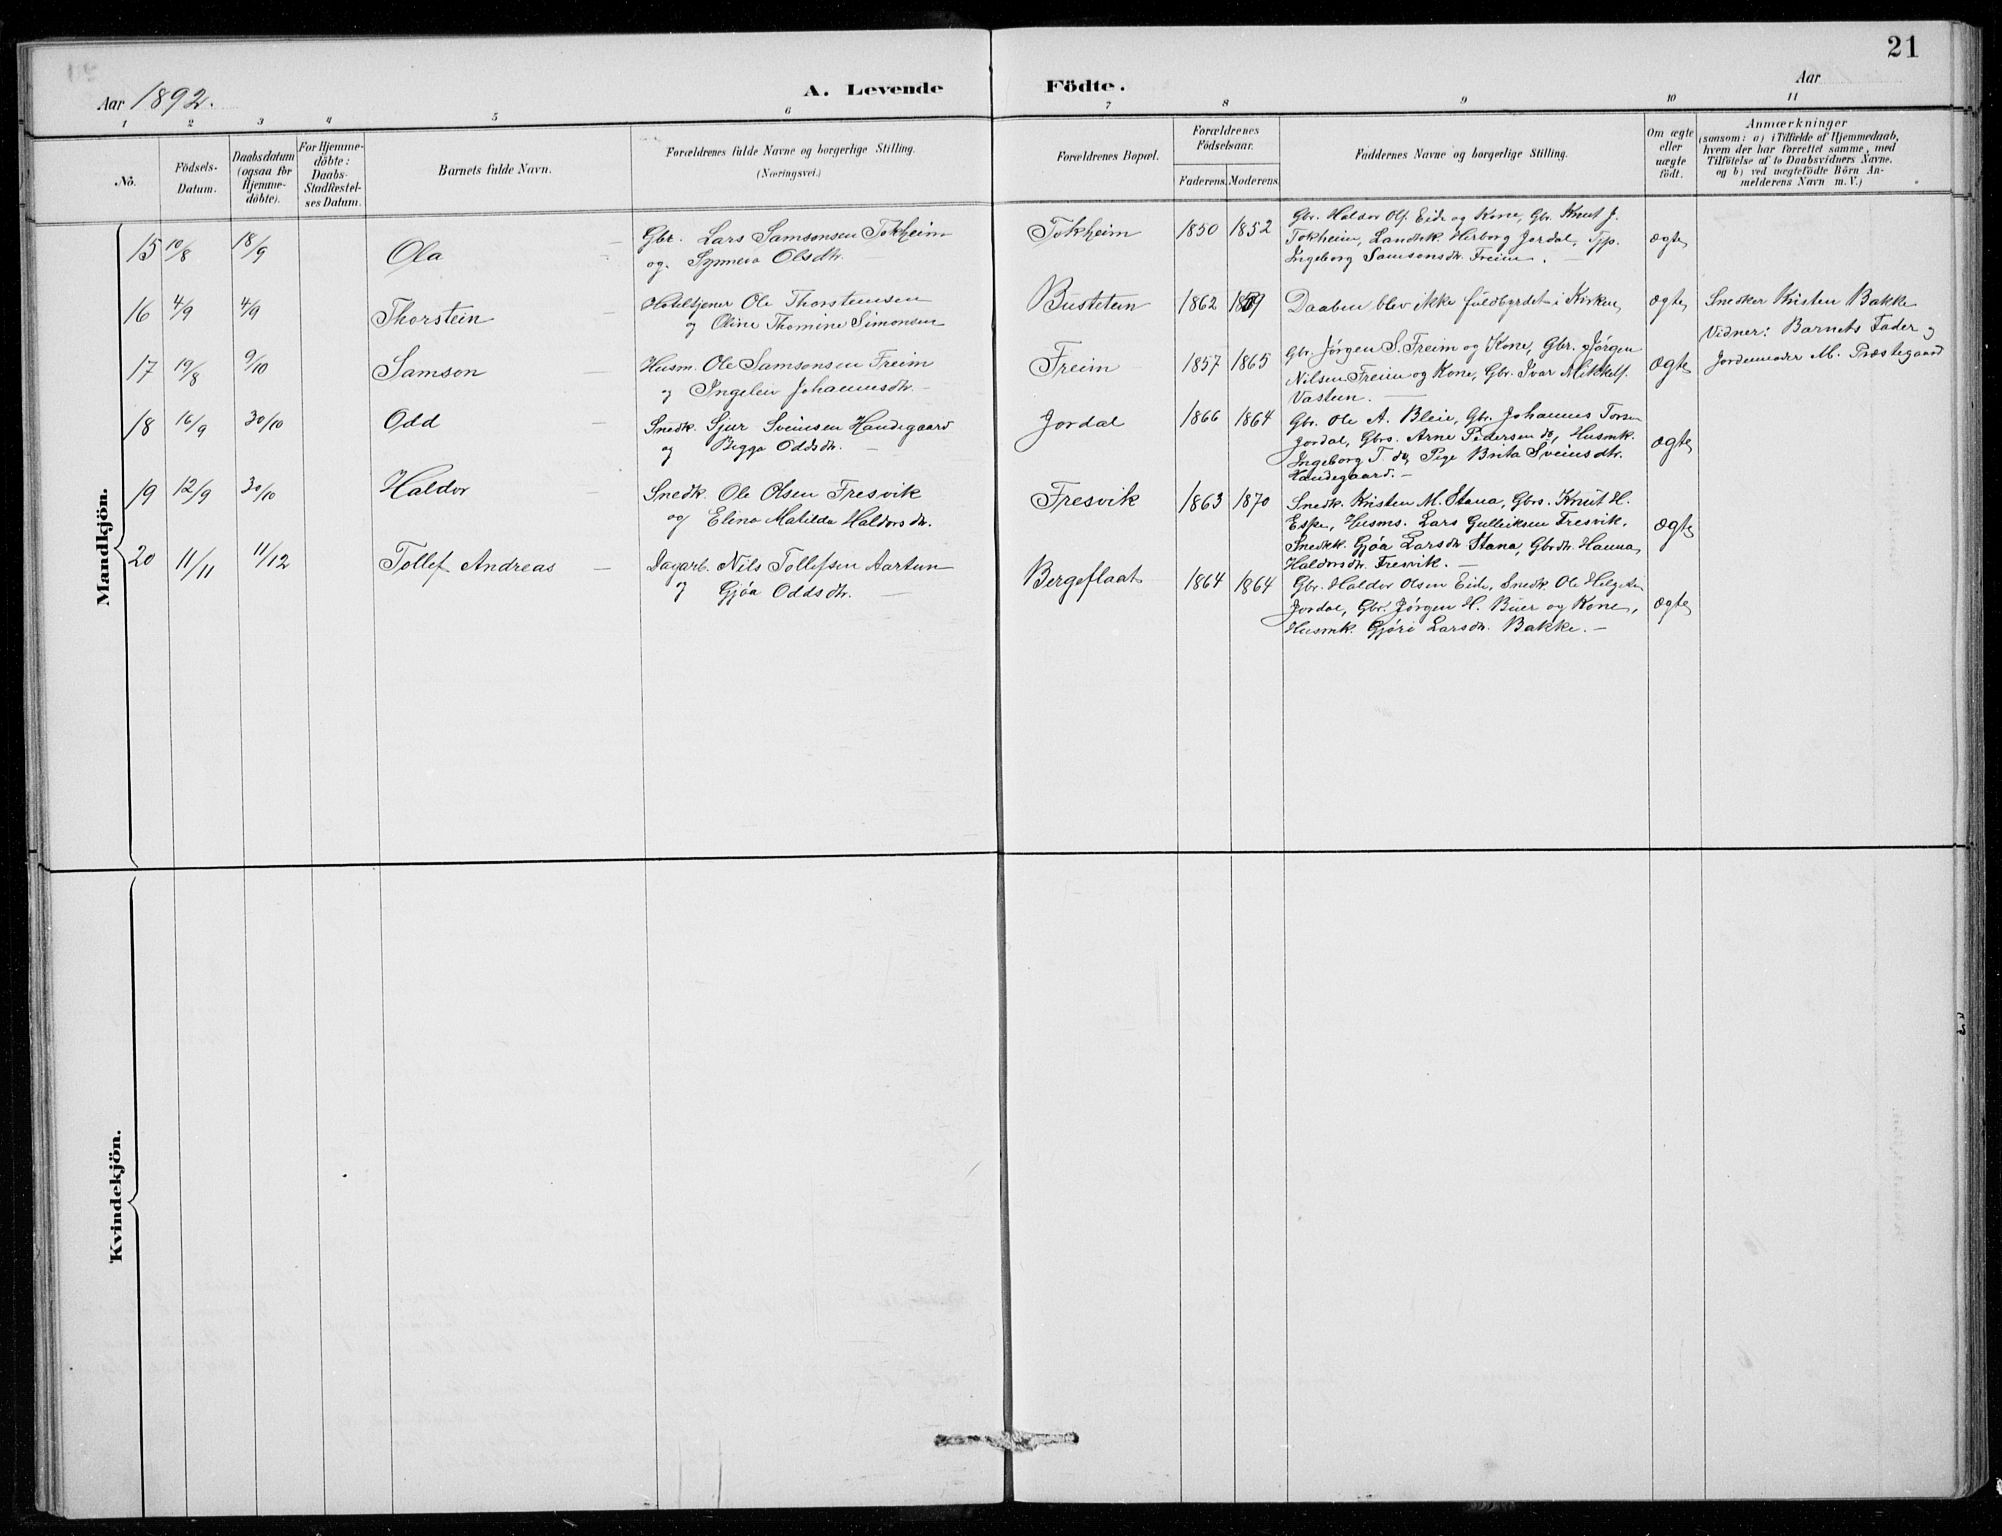 21
Aar 1892. A. Levende Födte. Aar
1 2 3 4 5 6 7 8 9 10 11
No. Födsels-Datum. Daabsdatum (ogsaa for Hjemme-döbte). For Hjemme-döbte: Daabs-Stadfæstel-ses Datum. Barnets fulde Navn. Forældrenes fulde Navne og borgerlige Stilling. (Næringsvei.) Forældrenes Bopæl. Forældrenes Födselsaar. Faderens. Moderens. Faddernes Navne og borgerlige Stilling. Om ægte eller uægte födt. Anmærkninger (saasom: a) i Tilfælde af Hjemmedaab, hvem der har forrettet samme, med Tilföielse af to Daabsvidners Navne. og b) ved uægtefödte Börn An-melderens Navn m. V.)
Mandkjön.
15 10/8 18/9 Ola — Gbr. Lars Samsonsen Tokheim
og Synneva Olsdtr.
Tokheim 1850 1852 Gbr. Haldor Ols. Eide og Kone, Gbr. Knut J.
Tokheim, Landhk. Herborg Jordal, Tjp.
Ingeborg Samsonsdtr. Freim. —
ægte
16 4/9 4/9 Thorstein — Hoteltjener Ole Thorsteinsen
og Oline Thomine Simonsen
Busteten 1862 1859 Daaben blev ikke fuldbyrdet i Kirken, ægte Snedker Kristen Bakke
Vidner: Barnets Fader og
Jordemoder M. Præstegaard
17 19/8 9/10 Samson — Husm. Ole Samsonsen Freim
og Ingeleiv Johannesdtr. —
Freim 1857 1865 Gbr. Jørgen S. Freim og Kone, Gbr. Jørgen
Nilsen Freim og Kone, Gbr. Ivar Mikkels.
Vastun. —
ægte
18 16/9 30/10 Odd — Snedk. Sjur Sveinsen Handegaard
og Bigga Oddsdtr. —
Jordal 1866 1864 Gbr. Ole A. Bleie, Gbr. Johannes Torsen
Jordal, Gbrs. Arne Pedersen do, Husmk.
Ingeborg T. do, Pige Brita Sveinsdtr.
Handegaard. —
ægte
19 12/9 30/10 Haldor — Snedk. Ole Olsen Fresvik
og Elina Matilda Haldorsdtr.
Fresvik 1863 1870 Snedk. Kristen M. Stana, Gbrs. Knut H.
Espe, Husms. Lars Gulleiksen Fresvik,
Snedkk. Gjøa Larsdtr. Stana, Gbrdtr. Hanna
Haldorsdtr. Fresvik. —
ægte
20 11/11 11/12 Tollef Andreas — Dagarb. Nils Tollefsen Aartun
og Gjøa Oddsdtr. —
Bergeflaat 1864 1864 Gbr. Haldor Olsen Eide, Snedk. Ole Helgesen
Jordal, Gbr. Jørgen H. Buer og Kone,
Husmk. Gjøri Larsdtr. Bakke. —
ægte
Kvindekjön.